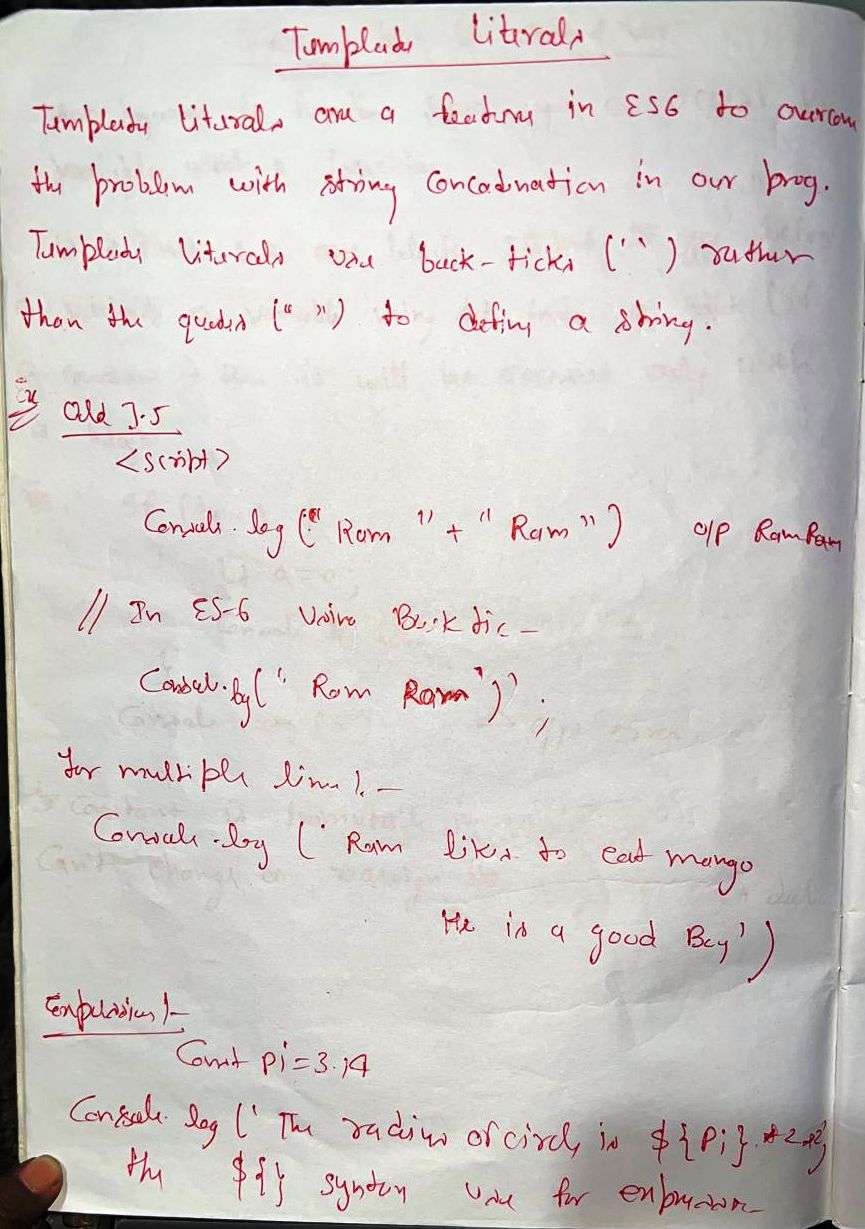 Template Literals
Template literals are a feature in ES6 to overcome
the problem with string concatination in our prog.
Template literals use back-ticks (``) rather
than the quotes (" ") to define a string.
Ex Old J.S
<script>
Console.log ("Ram" + "Ram") o/p RamRam
// In ES-6 Using Back tic -
Console.log(` Ram Ram`);
for multiple line :-
Console.log (` Ram likes to eat mango
He is a good Boy`)
Expression :-
Const pi=3.14
Console.log (` The radius of circle is ${Pi}
the ${} syntax use for expression -